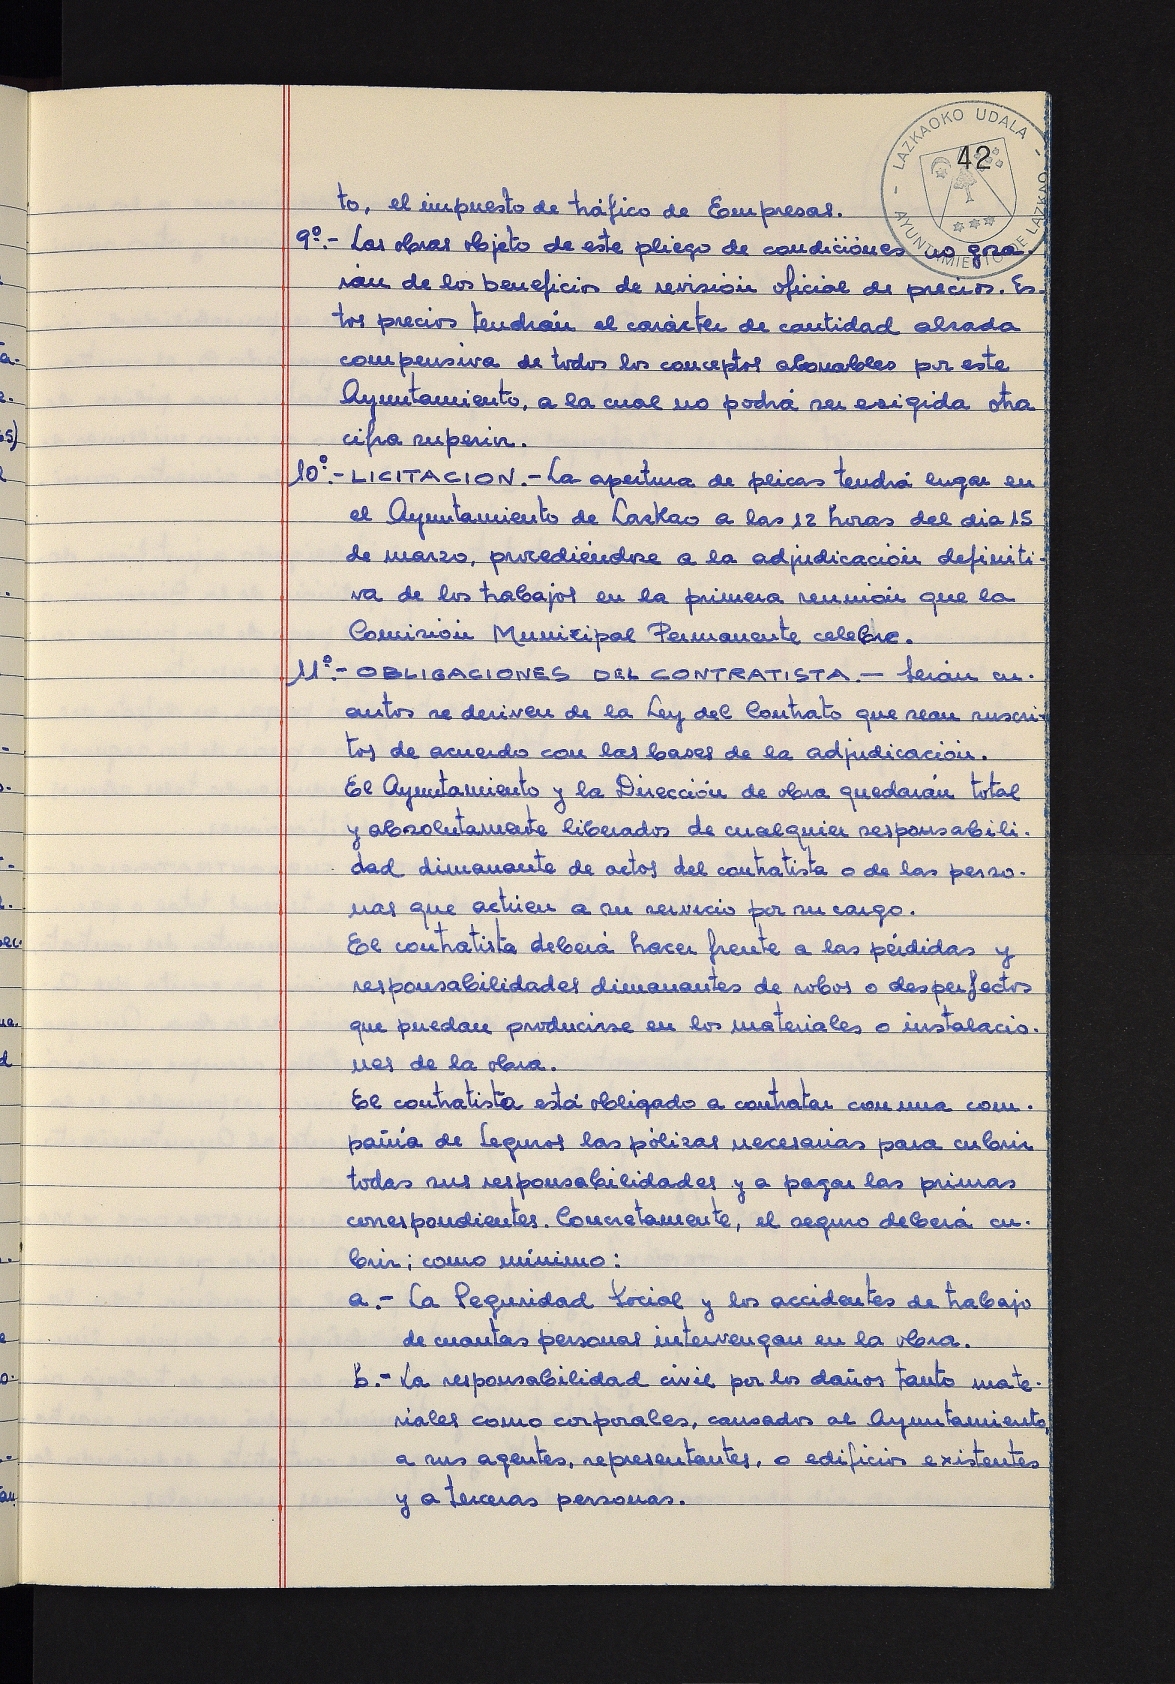 LAZKAOKO UDALA - AYUNTAMIENTO DE LAZKAO -
42
to, el impuesto de tráfico de Empresas.
9º.- Las obras objeto de este pliego de condiciones no goza-
rán de los beneficios de revisión oficial de precios. Es-
tos precios tendrán el carácter de cantidad alzada
compensiva de todos los conceptos abonables por este
Ayuntamiento, a la cual no podrá ser exigida otra
cifra superior.
10º.- LICITACION.- La apertura de plicas tendrá lugar en
el Ayuntamiento de Lazkao a las 12 horas del dia 15
de marzo, procediéndose a la adjudicación definiti-
va de los trabajos en la primera reunión que la
Comisión Municipal Permanente celebre.
11º.- OBLIGACIONES DEL CONTRATISTA.- Serán cu-
antos se deriven de la Ley del Contrato que sean suscri-
tos de acuerdo con las bases de la adjudicación.
El Ayuntamiento y la Dirección de obra quedarán total
y absolutamente liberados de cualquier responsabili-
dad dimanante de actos del contratista o de las perso-
nas que actúen a su servicio por su cargo.
El contratista deberá hacer frente a las pérdidas y
responsabilidades dimanantes de robos o desperfectos
que puedan producirse en los materiales o instalacio-
nes de la obra.
El contratista está obligado a contratar con una com-
pañía de Seguros las pólizas necesarias para cubrir
todas sus responsabilidades y a pagar las primas
correspondientes. Concretamente, el seguro deberá cu-
brir; como mínimo:
a.- La Seguridad Social y los accidentes de trabajo
de cuantas personas intervengan en la obra.
b.- La responsabilidad civil por los daños tanto mate-
riales como corporales, causados al Ayuntamiento,
a sus agentes, representantes, o edificios existentes
y a terceras personas.